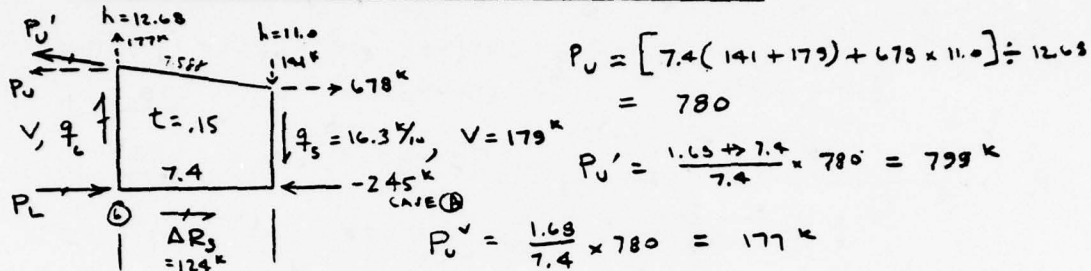 h=12.68
Pᵤ' 177ᴷ h=11.0
7.588 141ᴷ
Pᵤ → 678ᴷ
V, q₆ t=.15 q₅ = 16.3 ᴷ/ɪɴ, V=179ᴷ
7.4
P_L -245ᴷ
CASE Ⓐ
⑥ ΔR₃
=124ᴷ
Pᵤ = [7.4(141+179)+678×11.0]÷12.68
= 780
Pᵤ' = 1.68 +> 7.4 / 7.4 × 780 = 799ᴷ
Pᵤᵛ = 1.68 / 7.4 × 780 = 177 ᴷ